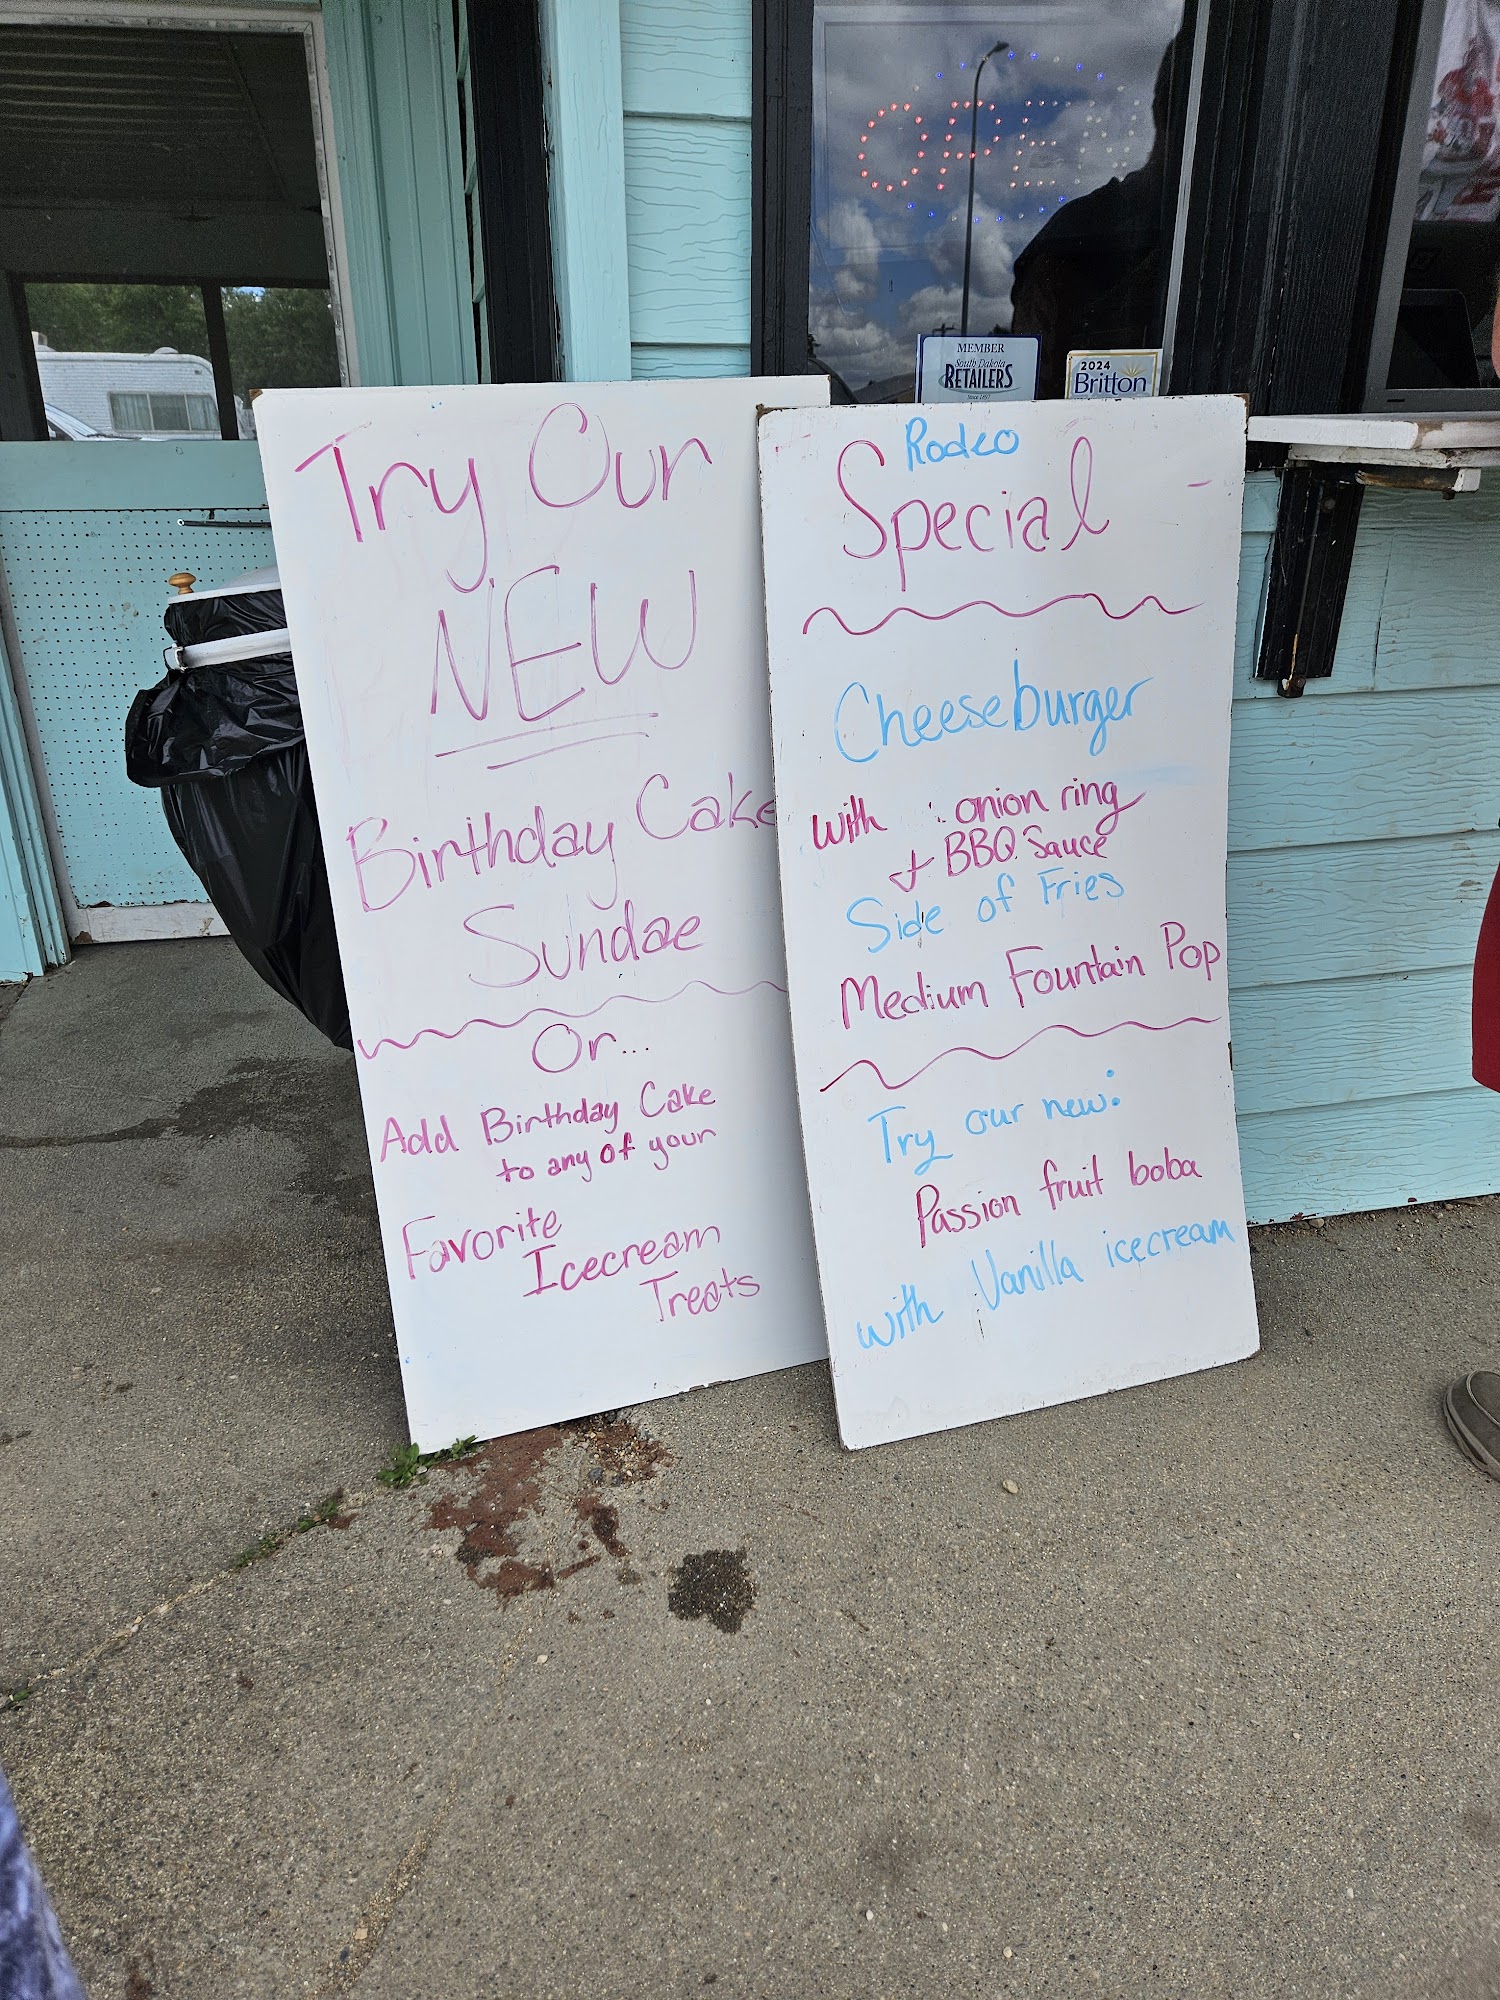 OPEN
MEMBER
South Dakota
RETAILERS
2024
Britton
Try Our
NEW
Birthday Cake
Sundae
Or...
Add Birthday Cake
to any of your
Favorite
Icecream
Treats
Rodeo
Special
Cheeseburger
with onion ring
+ BBQ Sauce
Side of Fries
Medium Fountain Pop
Try our new:
Passion fruit boba
with Vanilla icecream